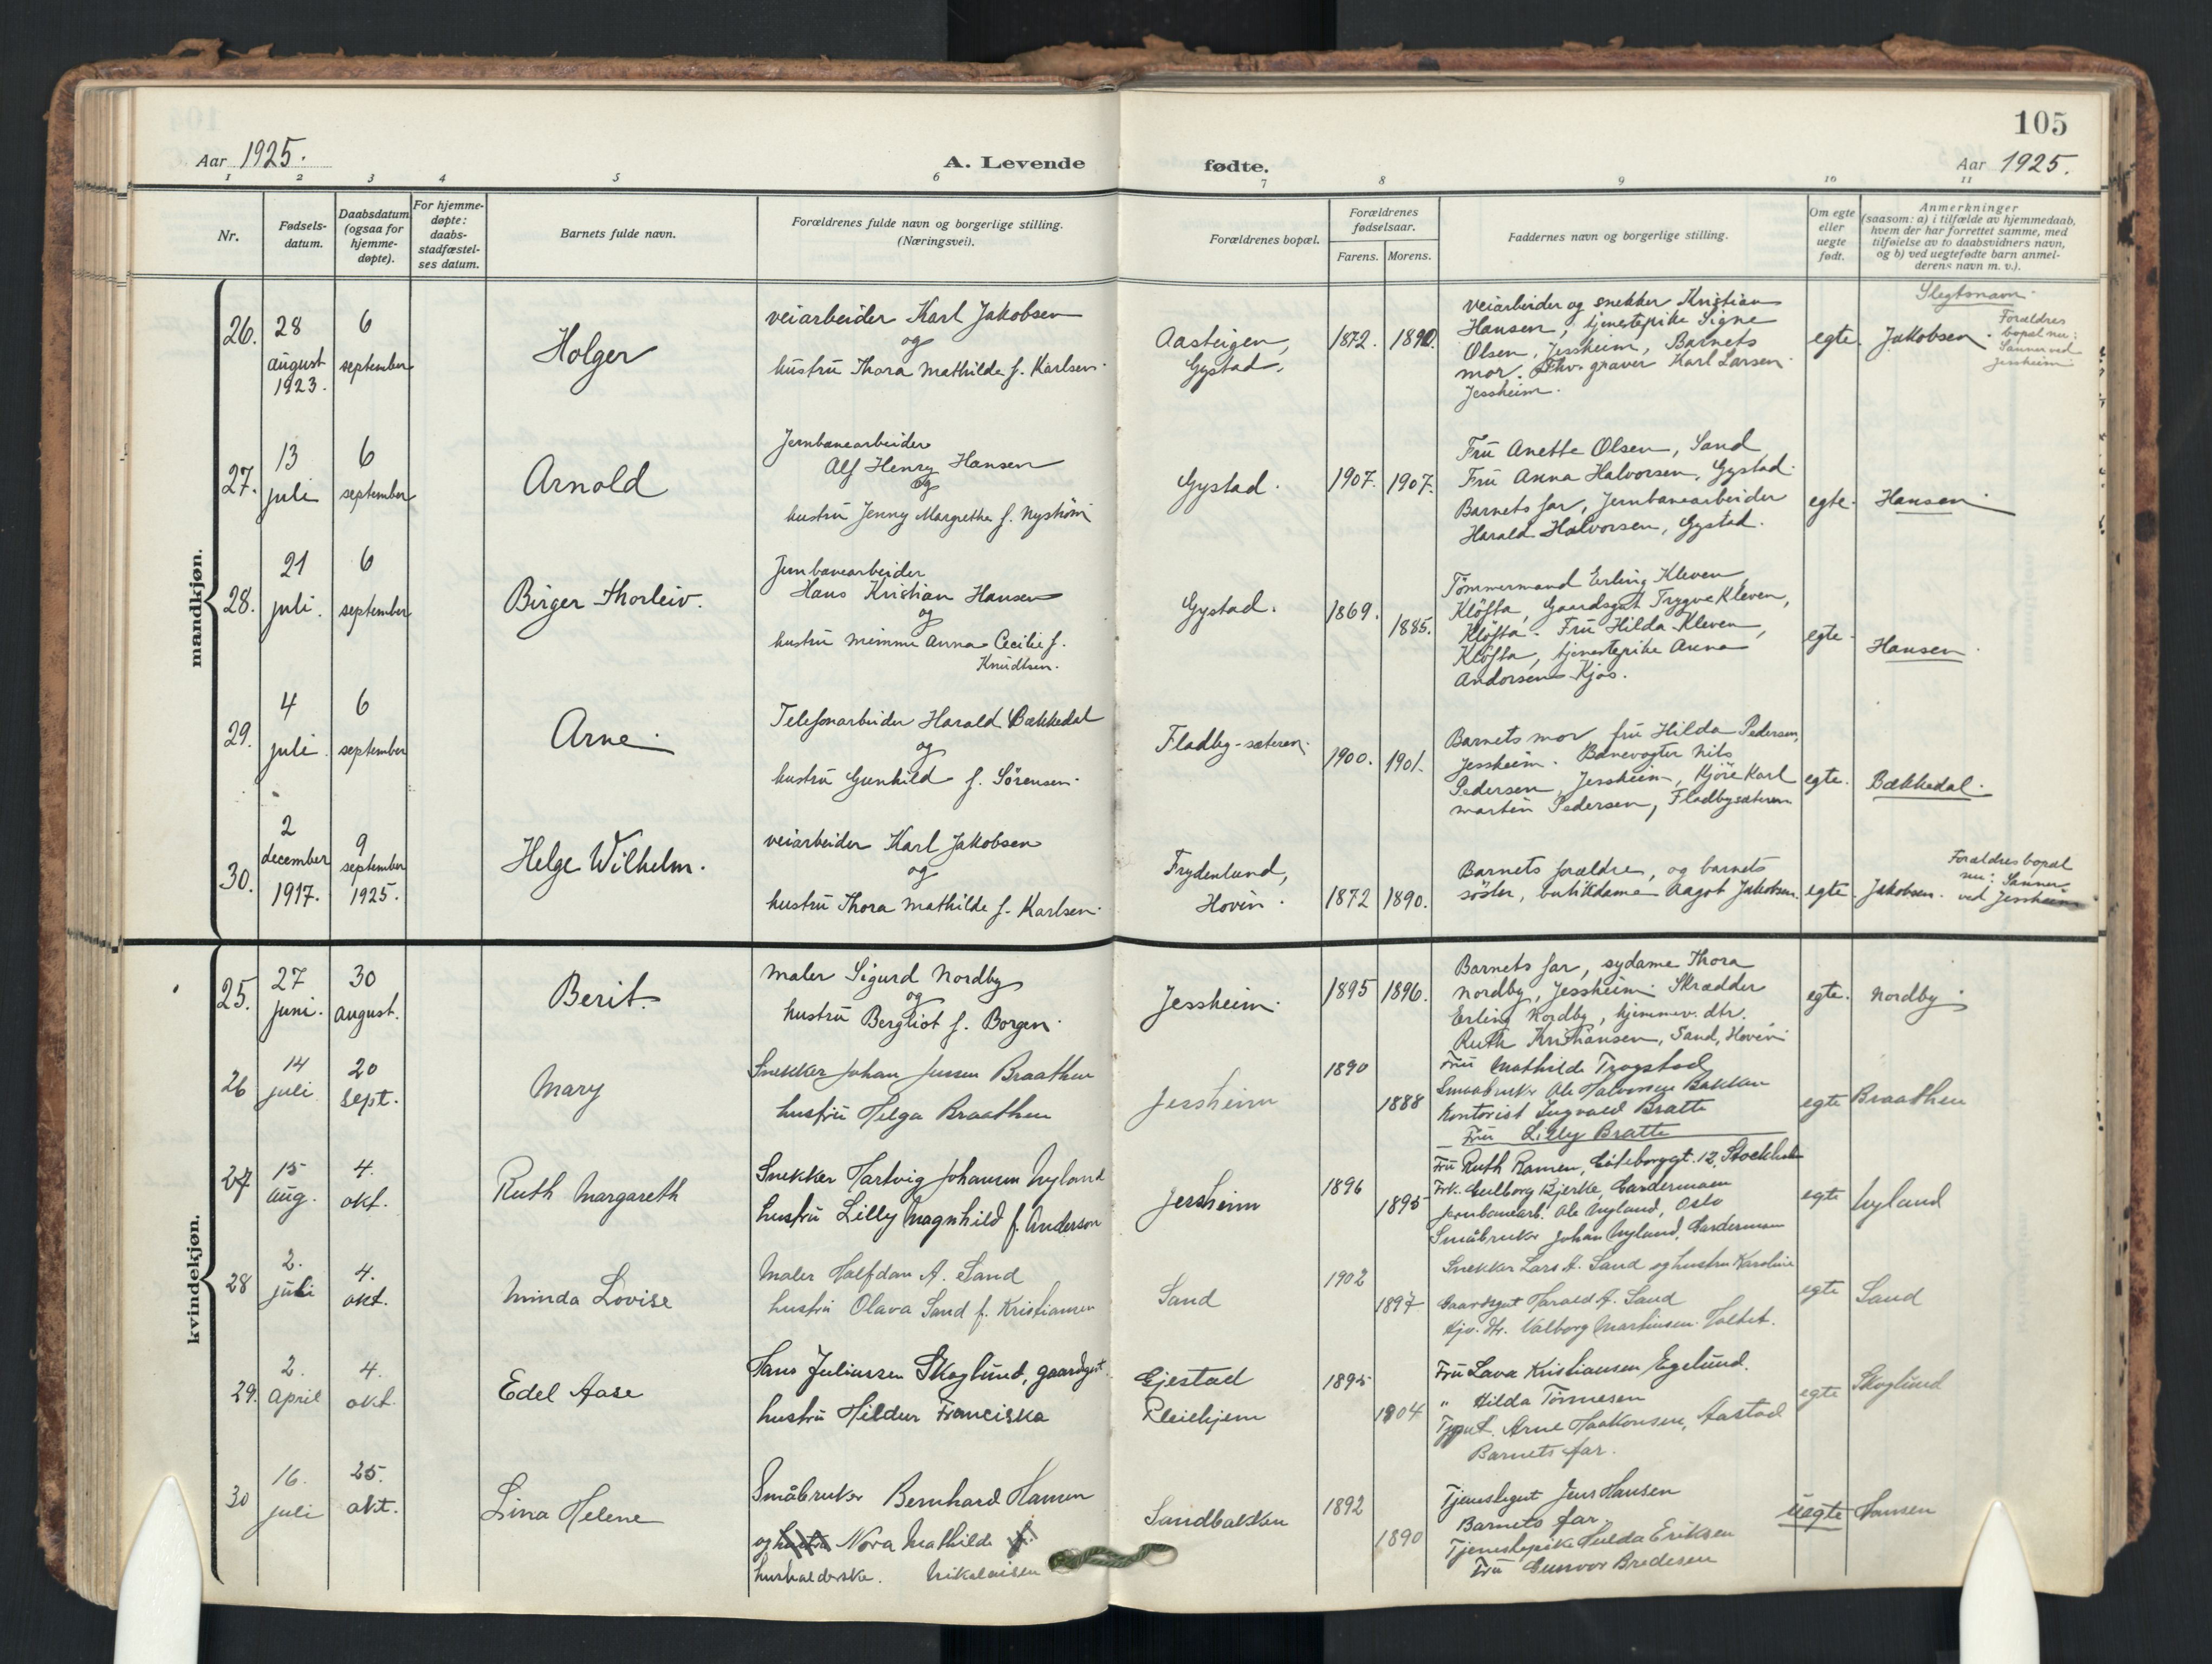 105
Aar 1925.
A. Levende fødte.
Aar 1925.
1 2 3 4 5 6 7 8 9 10 11
Nr.
Fødsels-
datum.
Daabsdatum
(ogsaa for
hjemme-
døpte).
For hjemme-
døpte:
daabs-
stadfæstel-
ses datum.
Barnets fulde navn.
Forældrenes fulde navn og borgerlige stilling.
(Næringsvei).
Forældrenes bopæl.
Forældrenes
fødselsaar.
Farens. Morens.
Faddernes navn og borgerlige stilling.
Om egte
eller
uegte
født.
Anmerkninger
(saasom: a) i tilfælde av hjemmedaab,
hvem der har forrettet samme, med
tilføielse av to daabsvidners navn,
og b) ved uegtefødte barn anmel-
derens navn m. v.).
mandkjøn.
26.
28
august
1923.
6
september
Holger
veiarbeider Karl Jakobsen
og
hustru Thora Mathilde f. Karlsen.
Aasteigen,
Gystad.
1872. 1890.
veiarbeider og snekker Kristian
Hansen, tjenestepike Signe
Olsen, Jessheim, Barnets
mor. graver Karl Larsen
Jessheim.
egte.
Slegtsnavn.
Jakobsen.
Forældres
bopæl nu:
Sanner ved
Jessheim
27.
13
juli
6
september
Arnold
Jernbanearbeider
Alf Henry Hansen
og
hustru Jenny Margrethe f. Nyström
Gystad.
1907. 1907.
Fru Anette Olsen, Sand
Fru Anna Halvorsen, Gystad.
Barnets far, Jernbanearbeider
Harald Halvorsen, Gystad.
egte.
Hansen.
28.
21
juli.
6
september
Birger Thorleiv.
Jernbanearbeider
Hans Kristian Hansen
og
hustru Mimmi Anna Cecilie f.
Knudtsen.
Gystad.
1869. 1885.
Tömmermand Erling Kleven,
Klöfta, Gaardsgut Trygve Kleven,
Klöfta. Fru Hilda Kleven,
Klöfta, tjenestepike Anna
Andorsen Kjos.
egte.
Hansen.
29.
4
juli.
6
september
Arne.
Telefonarbeider Harald Bækkedal
og
hustru Gunhild f. Sörensen.
Fladby-sæteren.
1900. 1901.
Barnets mor, fru Hilda Pedersen,
Jessheim. Banevogter Nils
Pedersen, Jessheim, Kjöre Karl
Martin Pedersen, Fladbysæteren
egte.
Bækkedal.
30.
2
december
1917.
9
september
1925.
Helge Wilhelm.
veiarbeider Karl Jakobsen
og
hustru Thora Mathilde f. Karlsen.
Frydenlund,
Hovin.
1872 1890.
Barnets forældre, og barnets
söster, butikdame Aagot Jakobsen.
egte.
Jakobsen.
Forældres bopæl
nu: Sanner
ved Jessheim
kvindekjøn.
25.
27
juni.
30
august.
Berit
maler Sigurd Nordby
og
hustru Bergliot f. Borgen.
Jessheim.
1895 1896.
Barnets far, sydame Thora
Nordby, Jessheim. Skrædder
Erling Nordby, hjemmev. dtr.
Ruth Kristiansen, Sand, Hovin
egte.
Nordby.
26
14
juli
20
sept.
Mary
Snekker Johan Jensen Braathen
hustru Helga Braathen
Jessheim
1890
1888
Fru Mathilde Trogstad
Smaabruker Ole Halvorsen Bakken
Kontorist Ingvald Bratte
Fru Lilly Bratte
egte
Braathen
27
15
aug.
4.
okt.
Ruth Margareth
Snekker Hartvig Johansen Nyland
hustru Lilly Magnhild f. Anderson
Jessheim
1896
1895
Fru Ruth Ramen, Göteborggt. 12, Stockholm
Frk. Gulborg Bjerke, Gardermoen
Jernbanearb. Ole Nyland, Oslo
Småbruker Johan Nyland, Gardermoen
egte
Nyland
28
2.
juli
4.
okt.
Minda Lovise
Maler Halfdan A. Sand
hustru Olava Sand f. Kristiansen
Sand
1902
1897
Snekker Lars A. Sand og hustru Karoline
Gaardsgut Harald A. Sand
Hjv. dtr. Valborg Martinsen
egte
Sand
29.
2.
April
4.
okt.
Edel Aase
Hans Juliussen Skoglund, gaardsgut
hustru Hildur Franciska
Gjestad
Pleiehjem
1895
1904
Fru Lava Kristiansen Egelund.
" Hilda Tönnesen
Tjgut. Arne Haakonsen, Aastad
Barnets far.
egte
Skoglund
30
16.
juli
25.
okt.
Lina Helene
Småbruker Bernhard Hansen
og hustru Nova Mathilde f.
husholderske. Nikolaisen
Sandbakken
1892
1890
Tjenestegut Jens Hansen
Barnets far.
Tjenestepike Hulda Eriksen
Fru Gunvor Bredesen
uegte
Hansen